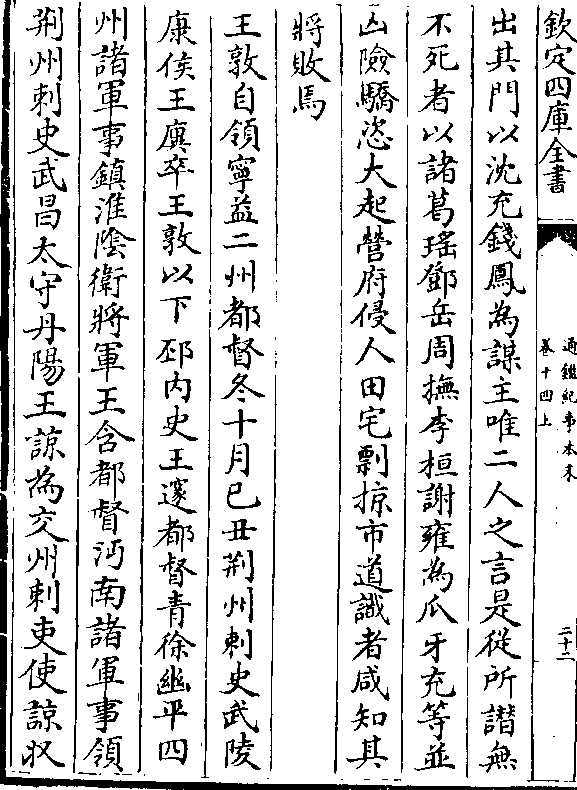 欽定四庫全書
通鑑紀事本末
卷十四上
二十二
出其門以沈充錢鳳為謀主唯二人之言是從所譖無
不死者以諸葛瑤鄧岳周撫李桓謝雍為爪牙充等並
凶險驕恣大起營府侵人田宅剽掠市道識者咸知其
將敗焉
王敦自領寧益二州都督冬十月己丑荆州刺史武陵
康侯王廙卒王敦以下邳內史王邃都督青徐幽平四
州諸軍事鎮淮陰衛將軍王含都督沔南諸軍事領
荆州刺史武昌太守丹陽王諒為交州刺吏使諒収